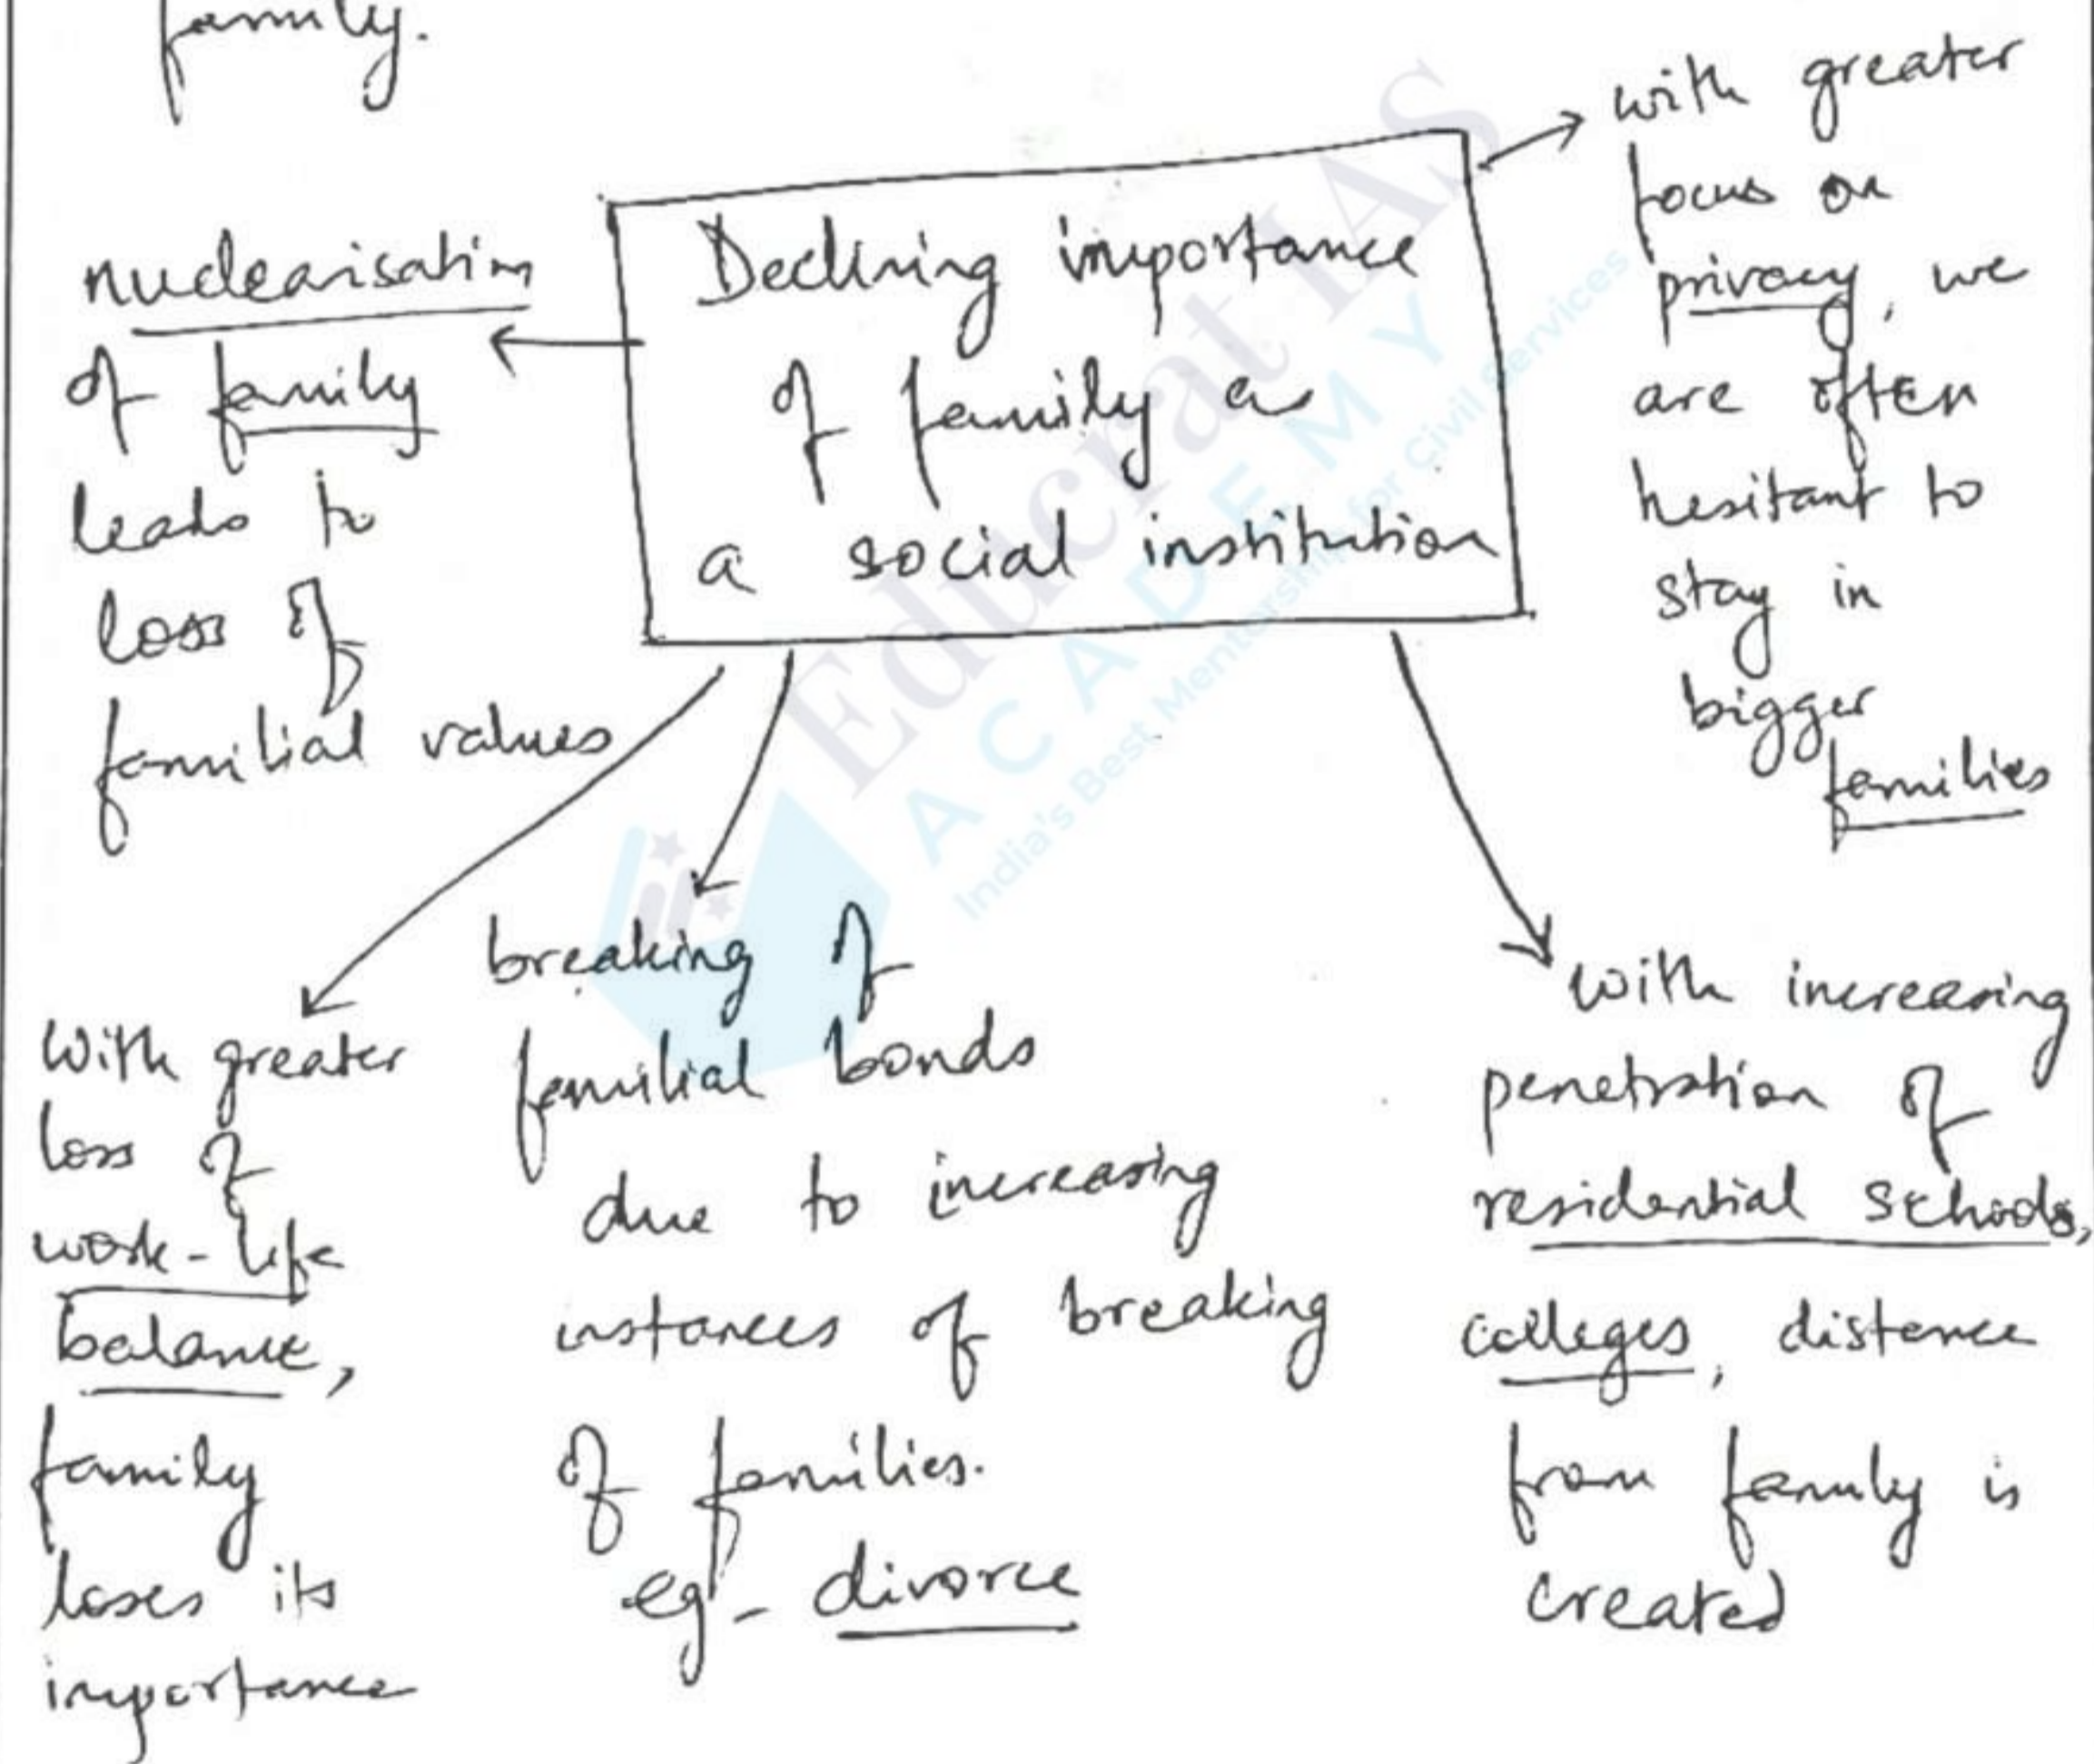 family.
Declining importance
of family as
a social institution
nuclearisation
of family
leads to
loss of
familial values
with greater
focus on
privacy, we
are often
hesitant to
stay in
bigger
families
With greater
loss of
work-life
balance,
family
loses its
importance
breaking of
familial bonds
due to increasing
instances of breaking
of families.
eg - divorce
with increasing
penetration of
residential schools,
colleges, distance
from family is
created
Educrat IAS
ACADEMY
India's Best Mentorship for Civil Services